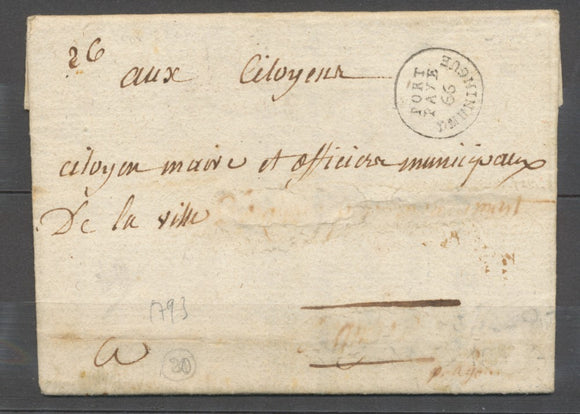 26
aux Citoyens
PORT
PAYÉ
66
HUNINGUE
citoyen maire et officiers municipaux
De la ville
1793
a
30